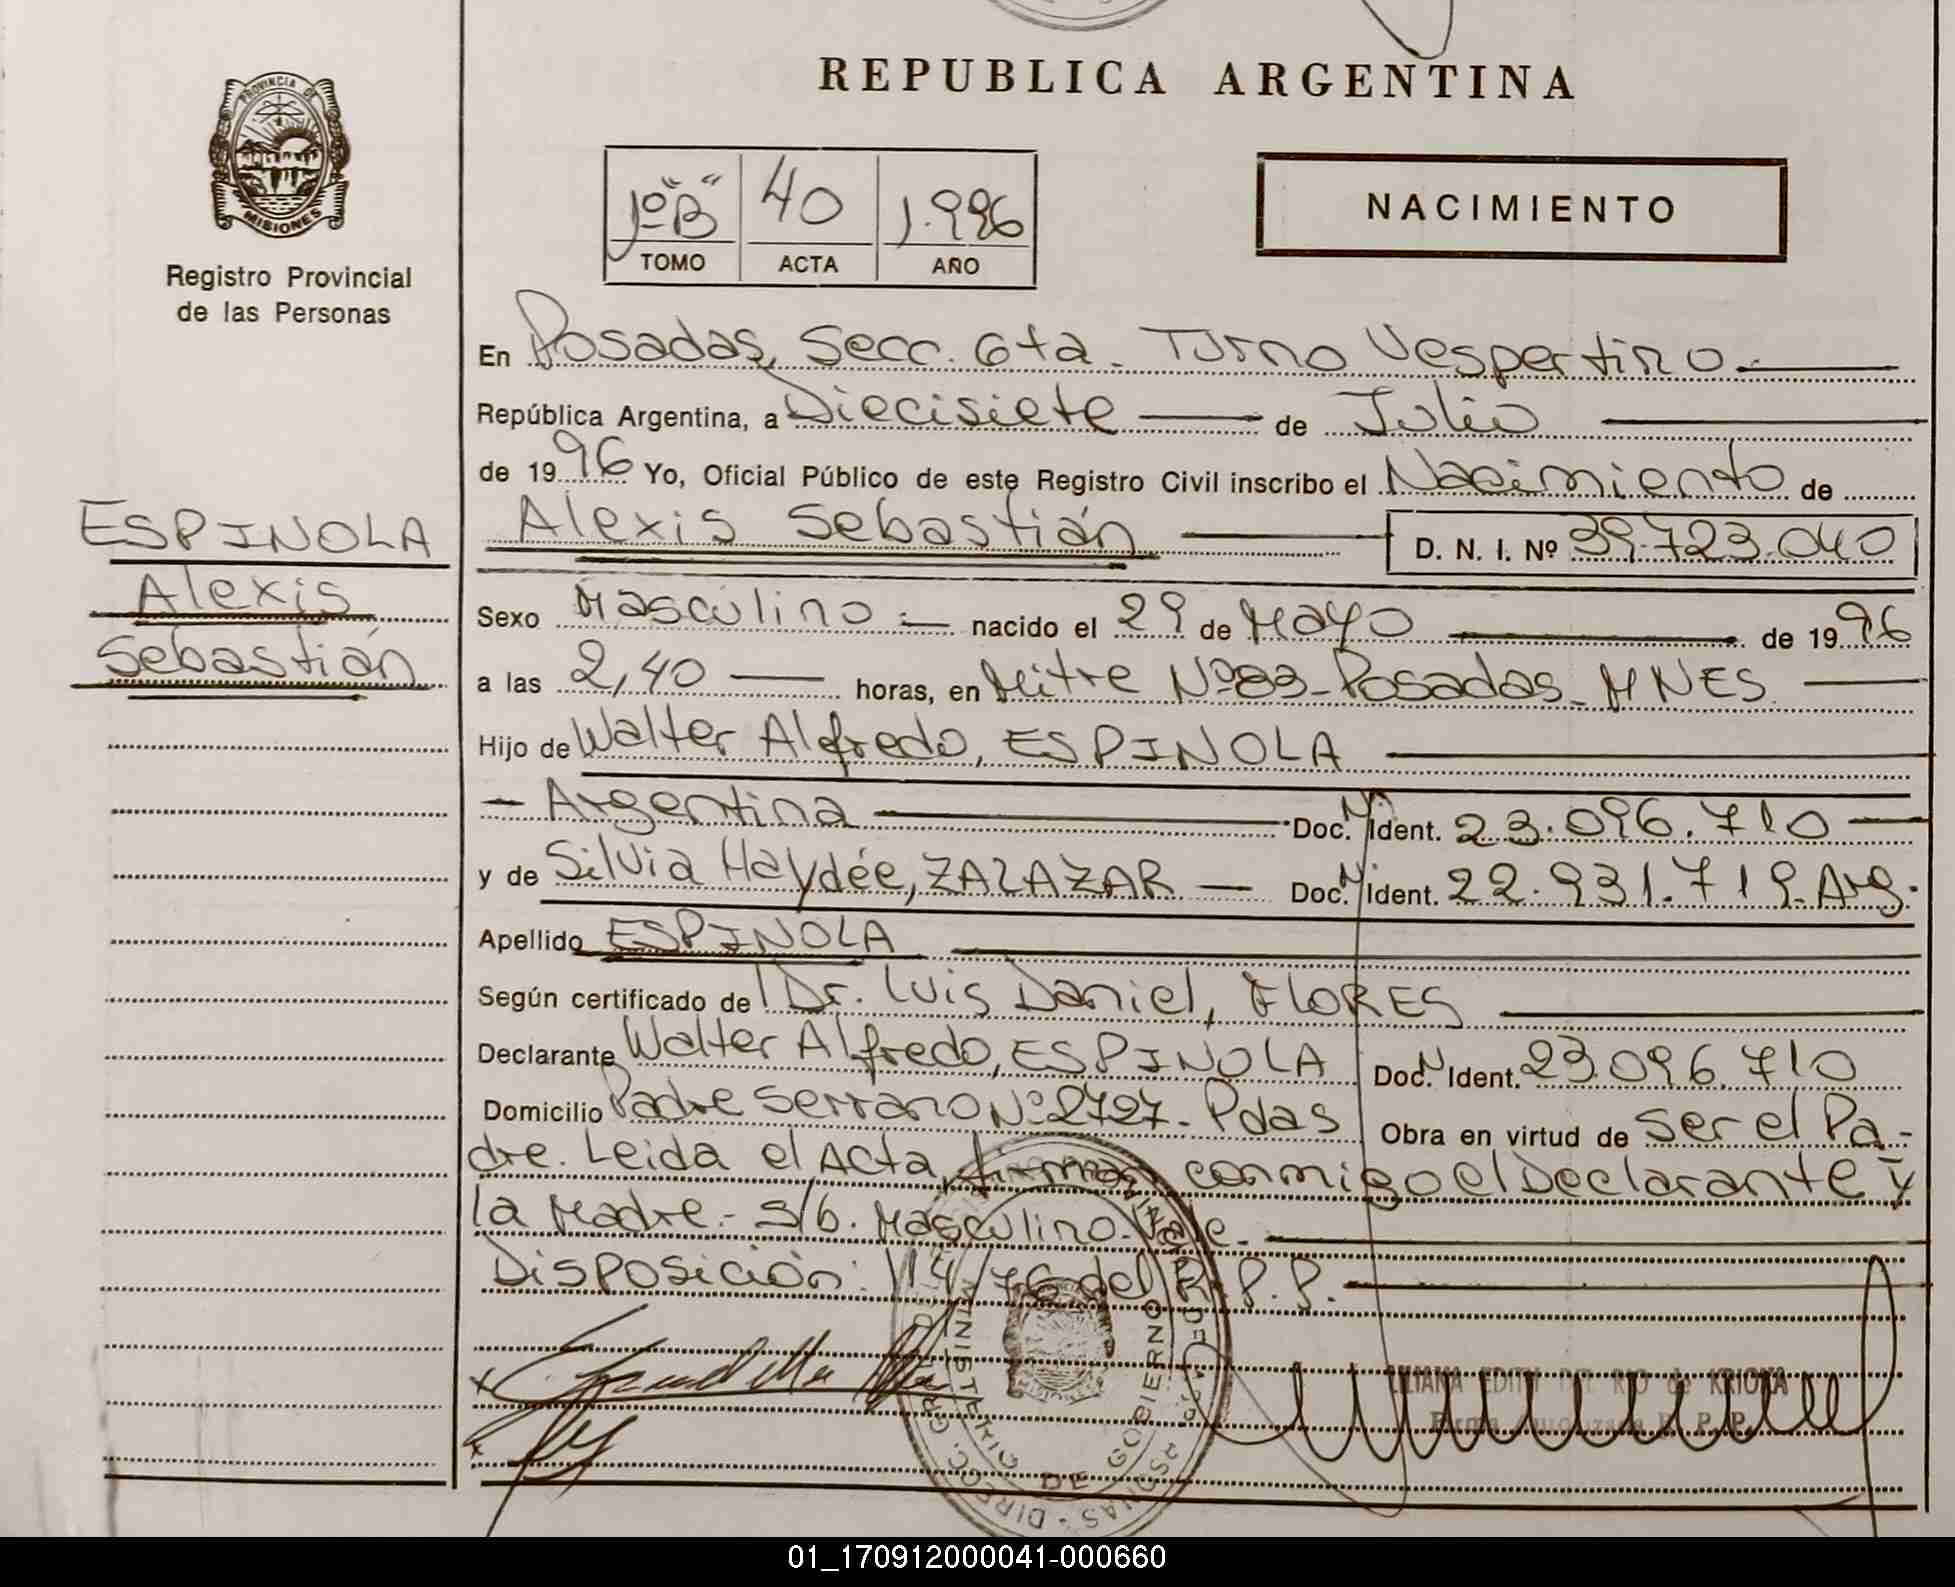 REPUBLICA ARGENTINA
PROVINCIA DE
MISIONES
Registro Provincial
de las Personas
1º "B" 40 1.996
TOMO ACTA AÑO
NACIMIENTO
En Posadas, Secc. 6ta. Turno Vespertino.-
República Argentina, a Diecisiete de Julio
de 1996 Yo, Oficial Público de este Registro Civil inscribo el Nacimiento de
Alexis Sebastián D. N. I. Nº 39.723.040
ESPINOLA
Alexis
Sebastián
Sexo Masculino.- nacido el 29 de Mayo de 1996
a las 2,40 horas, en Mitre Nº 83- Posadas- MNES
Hijo de Walter Alfredo, ESPINOLA
- Argentina Doc. N Ident. 23.096.710
y de Silvia Haydée, ZALAZAR - Doc. N Ident. 22.931.719. Arg.
Apellido ESPINOLA
Según certificado de Dr. Luis Daniel, FLORES
Declarante Walter Alfredo, ESPINOLA Doc. N Ident. 23.096.710
Domicilio Padre Serrano Nº 2727- Pdas Obra en virtud de ser el Pa-
dre. Leida el Acta, firman conmigo el Declarante y
la Madre.- s/b. Masculino. Vale.
Disposición: 114/76 del R. P. P.
LILIANA EDITH DEL RIO de KRIOKA
Firma Autorizada R. P. P.
MINISTERIO DE GOBIERNO
01_170912000041-000660